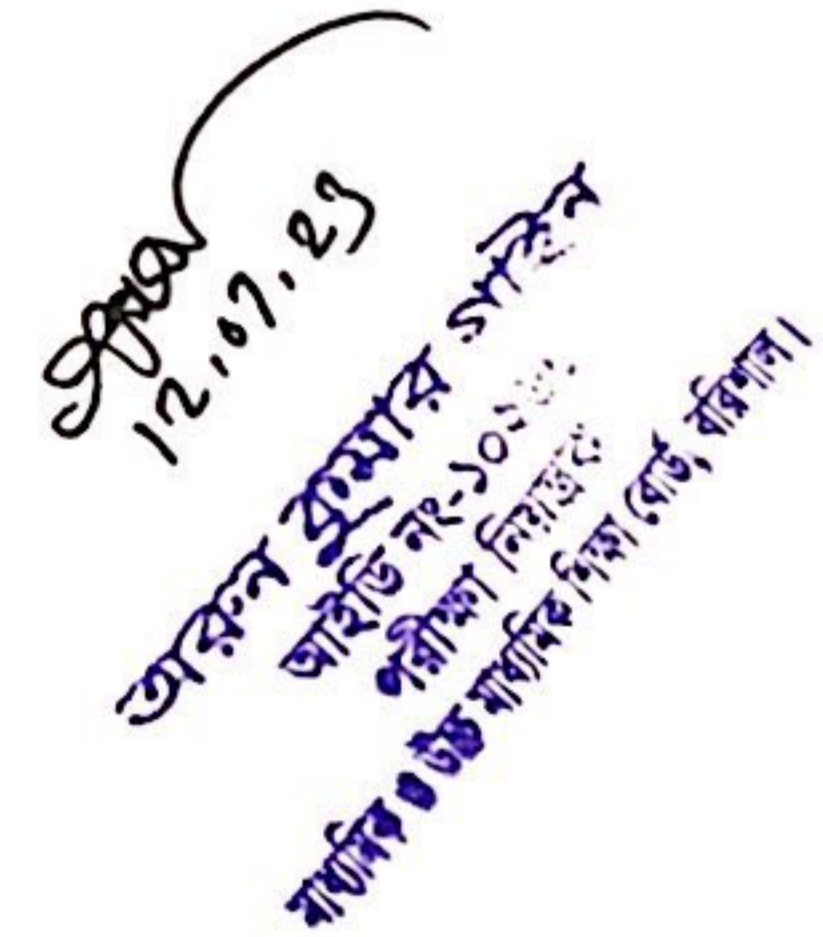 12.07.23
অরুন কুমার গাইন
আইডি নং-১০১
পরীক্ষা নিয়ন্ত্রক
মাধ্যমিক ও উচ্চ মাধ্যমিক শিক্ষা বোর্ড, বরিশাল।